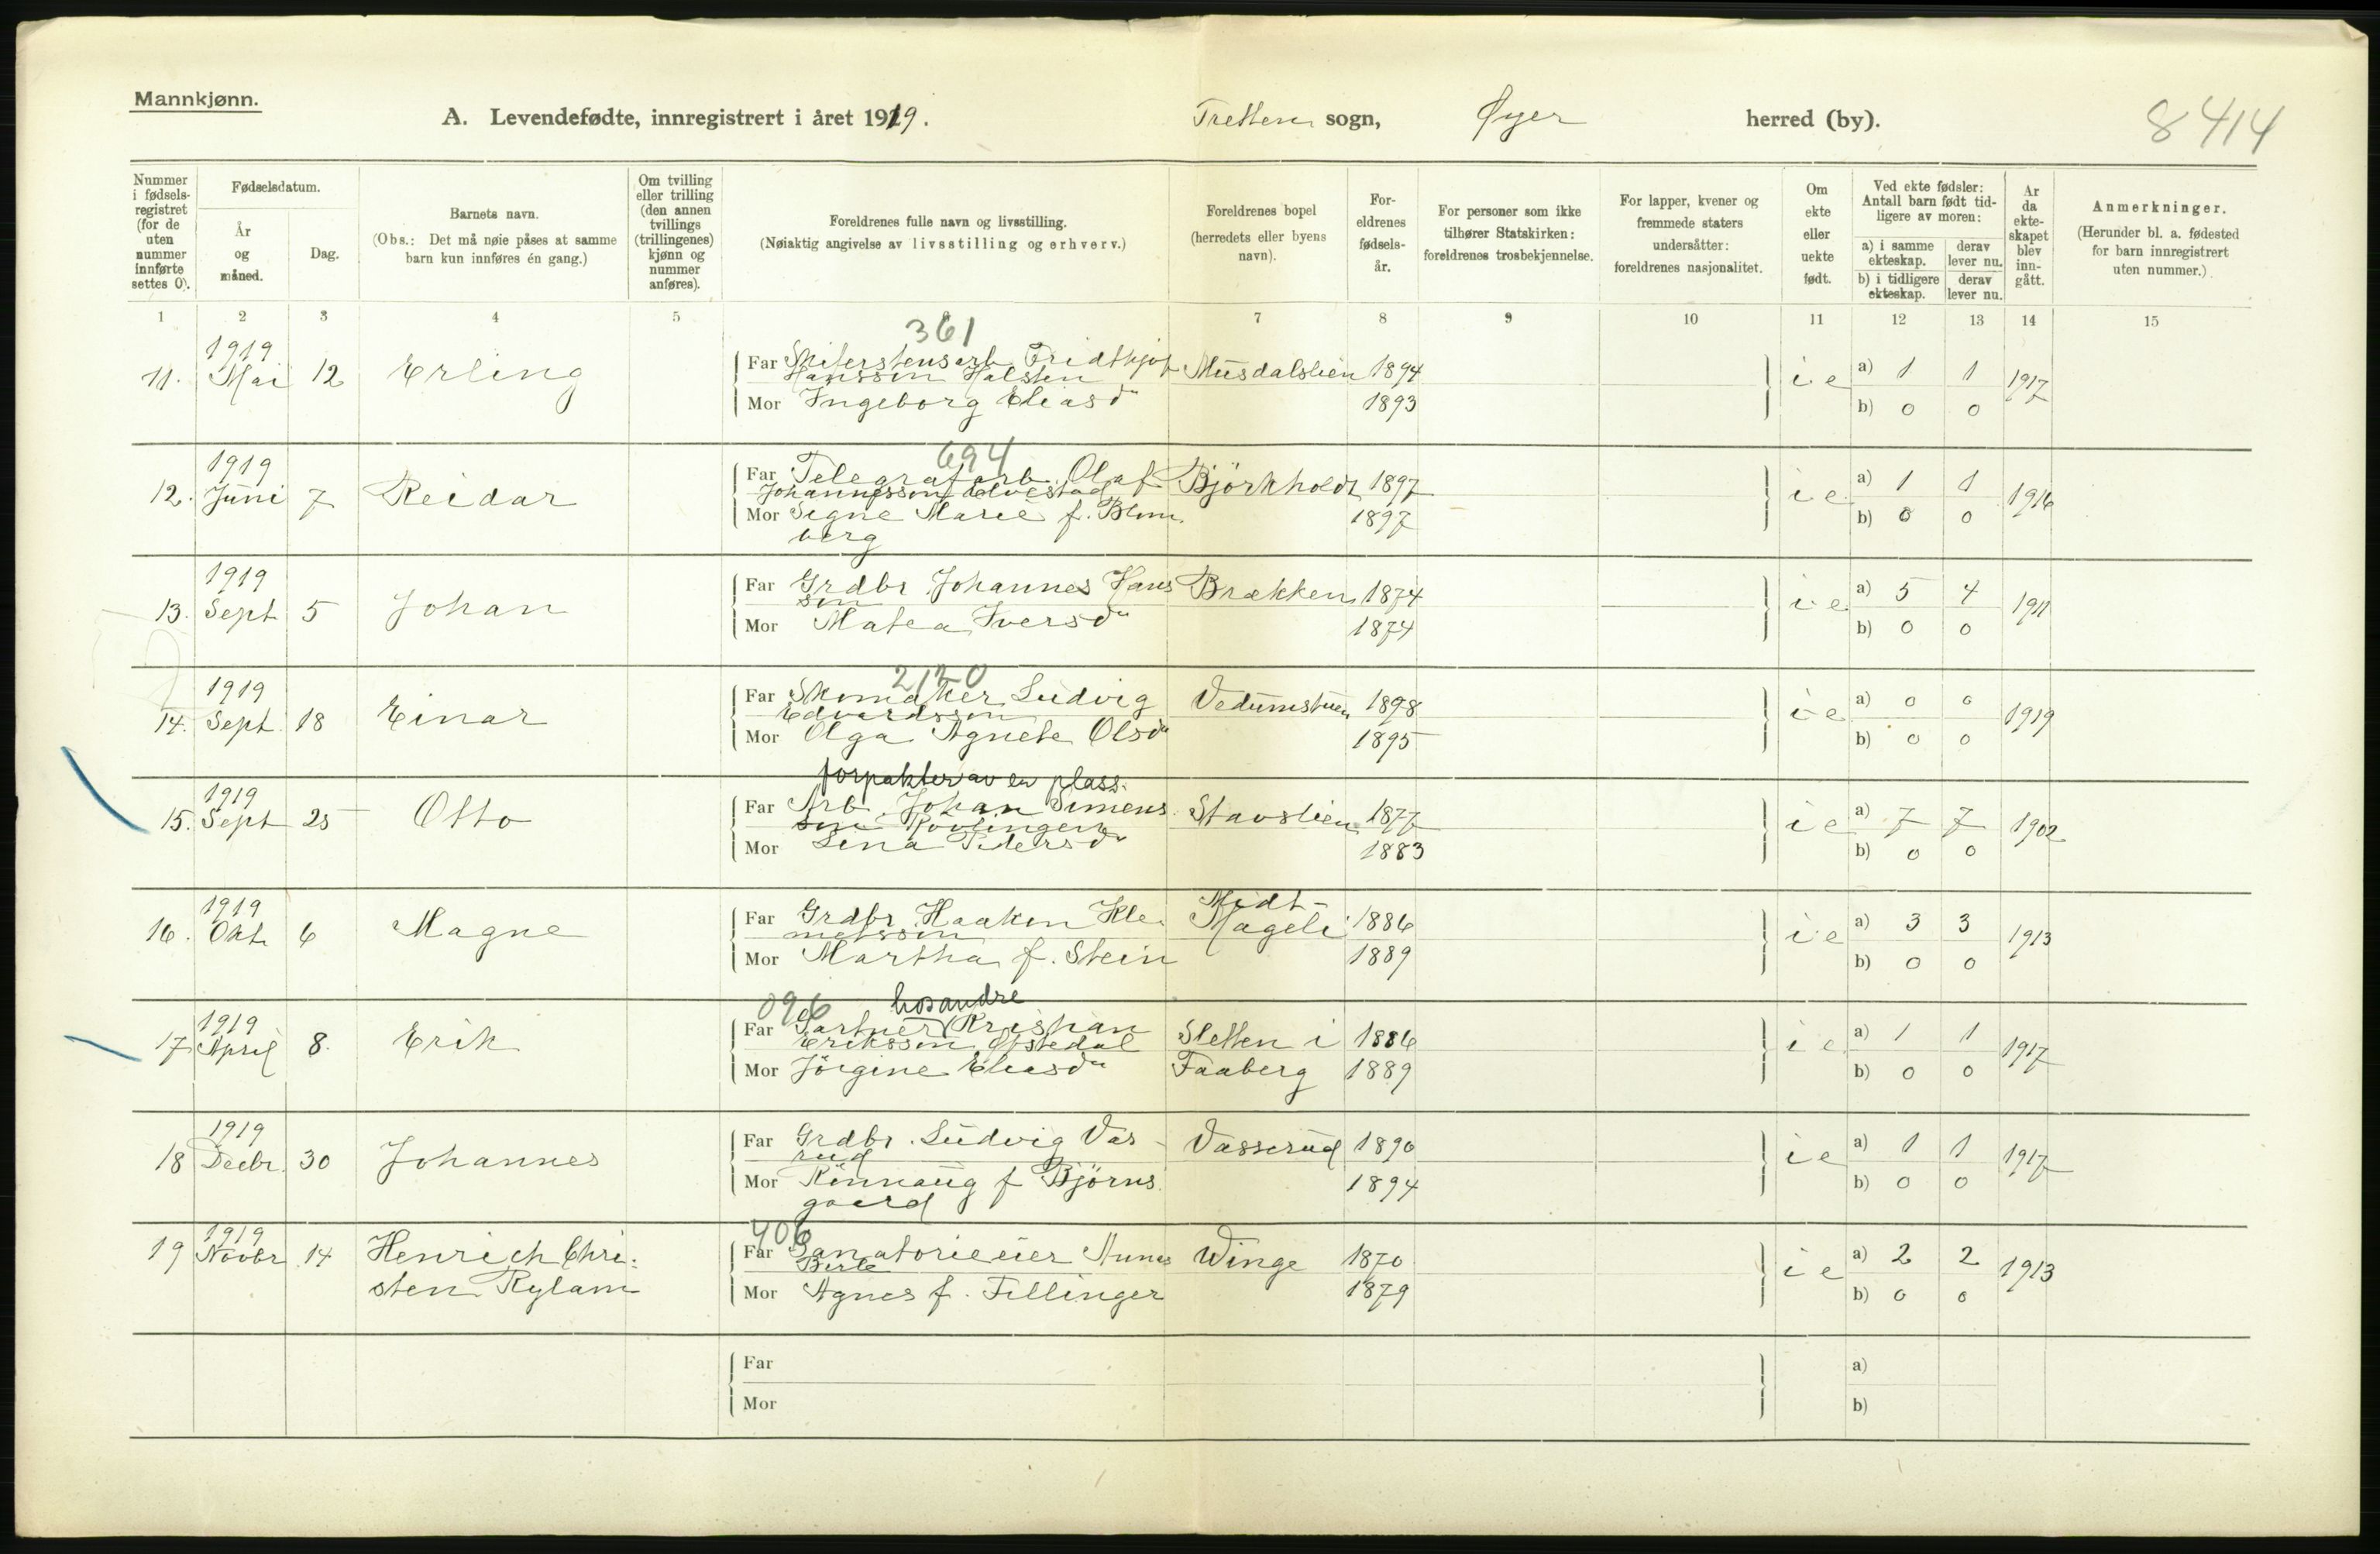 Mannkjønn.
A. Levendefødte, innregistrert i året 1919. Tretten sogn, Øyer herred (by). 8414
Nummer i fødselsregistret (for de uten nummer innførte settes 0).
Fødselsdatum.
År og måned.
Dag.
Barnets navn.
(Obs.: Det må nøie påses at samme barn kun innføres én gang.)
Om tvilling eller trilling (den annen tvillings (trillingenes) kjønn og nummer anføres).
Foreldrenes fulle navn og livsstilling.
(Nøiaktig angivelse av livsstilling og erhverv.)
Foreldrenes bopel (herredets eller byens navn).
Foreldrenes fødselsår.
For personer som ikke tilhører Statskirken: foreldrenes trosbekjennelse.
For lapper, kvener og fremmede staters undersåtter: foreldrenes nasjonalitet.
Om ekte eller uekte født.
Ved ekte fødsler: Antall barn født tidligere av moren:
a) i samme ekteskap. derav lever nu.
b) i tidligere ekteskap. derav lever nu.
Ar da ekteskapet blev inngått.
Anmerkninger.
(Herunder bl. a. fødested for barn innregistrert uten nummer.)
1 2 3 4 5 7 8 9 10 11 12 13 14 15
361
1919
11. Mai 12 Erling Far Fridthjof Musdalslien 1894 i e a) 1 1 1917
Hanssen Holsten
Mor Ingeborg Eliasdr 1893 b) 0 0
694
1919
12. Juni 7 Reidar Far Telegrafarb. Olaf Björkholdt 1897 i e a) 1 1 1916
Johannesson Elvestad
Mor Signe Marie f. Blom 1897 b) 0 0
berg
1919
13. Sept 5 Johan Far Grdbr Johannes Hans Brækken 1874 i e a) 5 4 1911
sen
Mor Matea Iversdr 1874 b) 0 0
2120
1919
14. Sept 18 Einar Far Skomaker Ludvig Vedumstuen 1898 i e a) 0 0 1919
Edvardssen
Mor Olga Agnete Olsdr 1895 b) 0 0
forpakter av en plass.
1919
15. Sept 25 Otto Far Arb. Johan Simens Stavslien 1877 i e a) 7 7 1902
sen
Mor Lina Pedersdr 1883 b) 0 0
1919 Midt-
16. Okt. 6 Magne Far Grdbr. Haaken Kle Mageli 1886 i e a) 3 3 1913
metssen
Mor Martha f. Stein 1889 b) 0 0
096 hos andre
1919
17 April 8. Erik Far Gartner Kristian Sletten i 1886 i e a) 1 1 1917
Erikssen Opstedal
Mor Jörgine Eliasdr Faaberg 1889 b) 0 0
1919
18 Decbr. 30 Johannes Far Grdbr. Ludvig Vas Vasserud 1890 i e a) 1 1 1917
rud
Mor Rönnaug f Björns 1894 b) 0 0
gaard
406
1919
19 Novbr. 14 Henrich Chri- Far Sanatorieeier Winge 1870 i e a) 2 2 1913
sten Rylam Mor Agnes f. Fillinger 1879 b) 0 0
Far a)
Mor b)